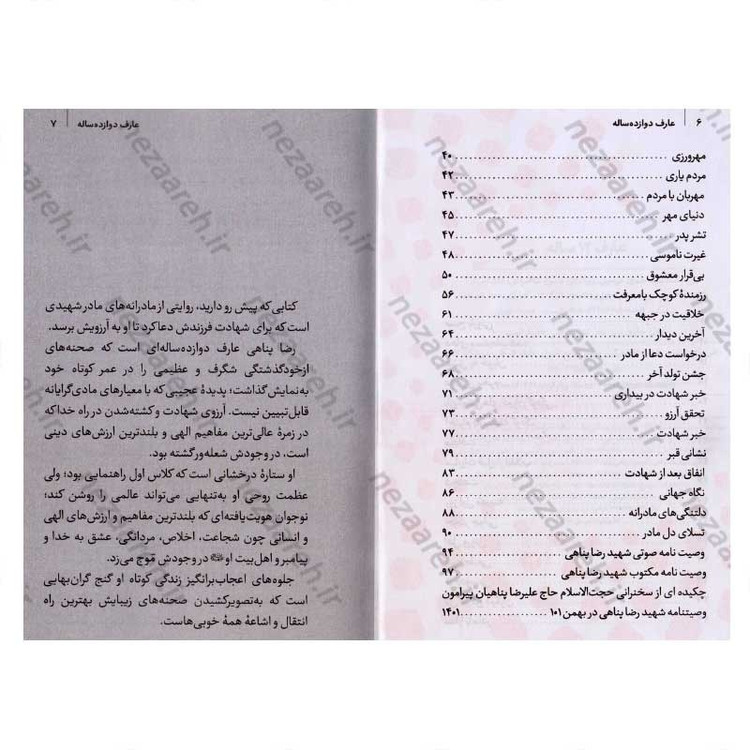 ۶ | عارف دوازده‌ساله
مهرورزی ........ ۴۰
مردم یاری ........ ۴۲
مهربان با مردم ........ ۴۳
دنیای مهر ........ ۴۵
تشر پدر ........ ۴۷
غیرت ناموسی ........ ۴۸
بی‌قرار معشوق ........ ۵۰
رزمندهٔ کوچک بامعرفت ........ ۵۶
خلاقیت در جبهه ........ ۶۱
آخرین دیدار ........ ۶۴
درخواست دعا از مادر ........ ۶۶
جشن تولد آخر ........ ۶۸
خبر شهادت در بیداری ........ ۷۱
تحقق آرزو ........ ۷۳
خبر شهادت ........ ۷۷
نشانی قبر ........ ۷۹
اتفاق بعد از شهادت ........ ۸۳
نگاه جهانی ........ ۸۶
دلتنگی‌های مادرانه ........ ۸۸
تسلای دل مادر ........ ۹۰
وصیت نامه صوتی شهید رضا پناهی ........ ۹۴
وصیت نامه مکتوب شهید رضا پناهی ........ ۹۷
چکیده ای از سخنرانی حجت‌الاسلام حاج علیرضا پناهیان پیرامون
وصیتنامه شهید رضا پناهی در بهمن ۱۴۰۱ ۱۰۱
عارف دوازده‌ساله | ۷
کتابی که پیش رو دارید، روایتی از مادرانه‌های مادر شهیدی
است که برای شهادت فرزندش دعا کرد تا او به آرزویش برسد.
رضا پناهی عارف دوازده‌ساله‌ای است که صحنه‌های
ازخودگذشتگی شگرف و عظیمی را در عمر کوتاه خود
به‌نمایش گذاشت؛ پدیدهٔ عجیبی که با معیارهای مادی‌گرایانه
قابل‌تبیین نیست. آرزوی شهادت و کشته‌شدن در راه خدا که
در زمرهٔ عالی‌ترین مفاهیم الهی و بلندترین ارزش‌های دینی
است، در وجودش شعله‌ور گشته بود.
او ستارهٔ درخشانی است که کلاس اول راهنمایی بود؛ ولی
عظمت روحی او به‌تنهایی می‌تواند عالمی را روشن کند؛
نوجوان هویت‌یافته‌ای که بلندترین مفاهیم و ارزش‌های الهی
و انسانی چون شجاعت، اخلاص، مردانگی، عشق به خدا و
پیامبر و اهل‌بیت او ﷺ در وجودش موج می‌زد.
جلوه‌های اعجاب‌برانگیز زندگی کوتاه او گنج گران‌بهایی
است که به‌تصویرکشیدن صحنه‌های زیبایش بهترین راه
انتقال و اشاعهٔ همهٔ خوبی‌هاست.
nezaareh.ir
nezaareh.ir
nezaareh.ir
nezaareh.ir
nezaareh.ir
nezaareh.ir